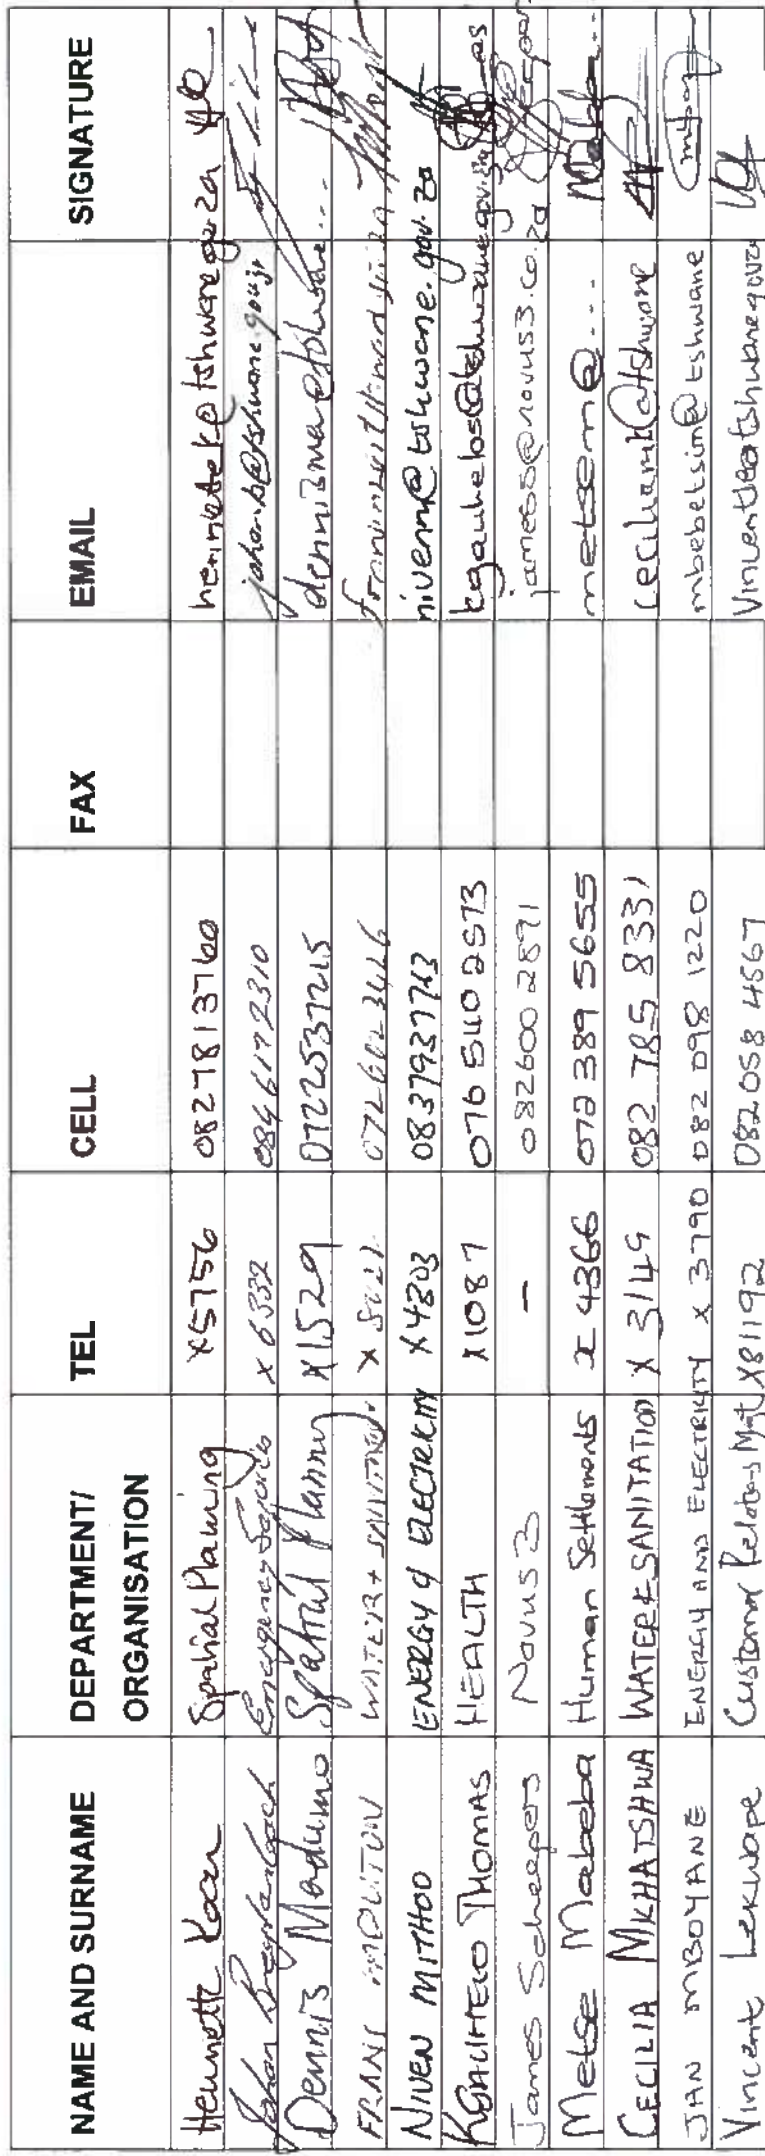 NAME AND SURNAME DEPARTMENT/ ORGANISATION TEL CELL FAX EMAIL SIGNATURE
Hennette Koan Spatial Planning x5756 0827813760
Johan Emergency Services x6332 0846172310
Dennis Madumo Spatial Planning x1529 0722537215
FRANS MOUTON WATER + SANITATION
NIVEN MITHOO ENERGY & ELECTRICITY x4203 0837937713 nivenm@tshwane.gov.za
KGAUHELO THOMAS HEALTH x1087 076 540 2573 kgauhelos@tshwane.gov.za
James Scheepers Novus 3 - 082600 2891 james@novus3.co.za
Metse Mabeba Human Settlements x 4366 072 389 5655 metsem@...
CECILIA MKHATSHWA WATER & SANITATION x 3149 082 785 8331 ceciliamk@tshwane
JAN MBOYANE ENERGY AND ELECTRICITY x 3790 082 098 1220 mbebelsim@tshwane
Vincent Lekwape Customer Relations Mgt x81192 082 058 4567